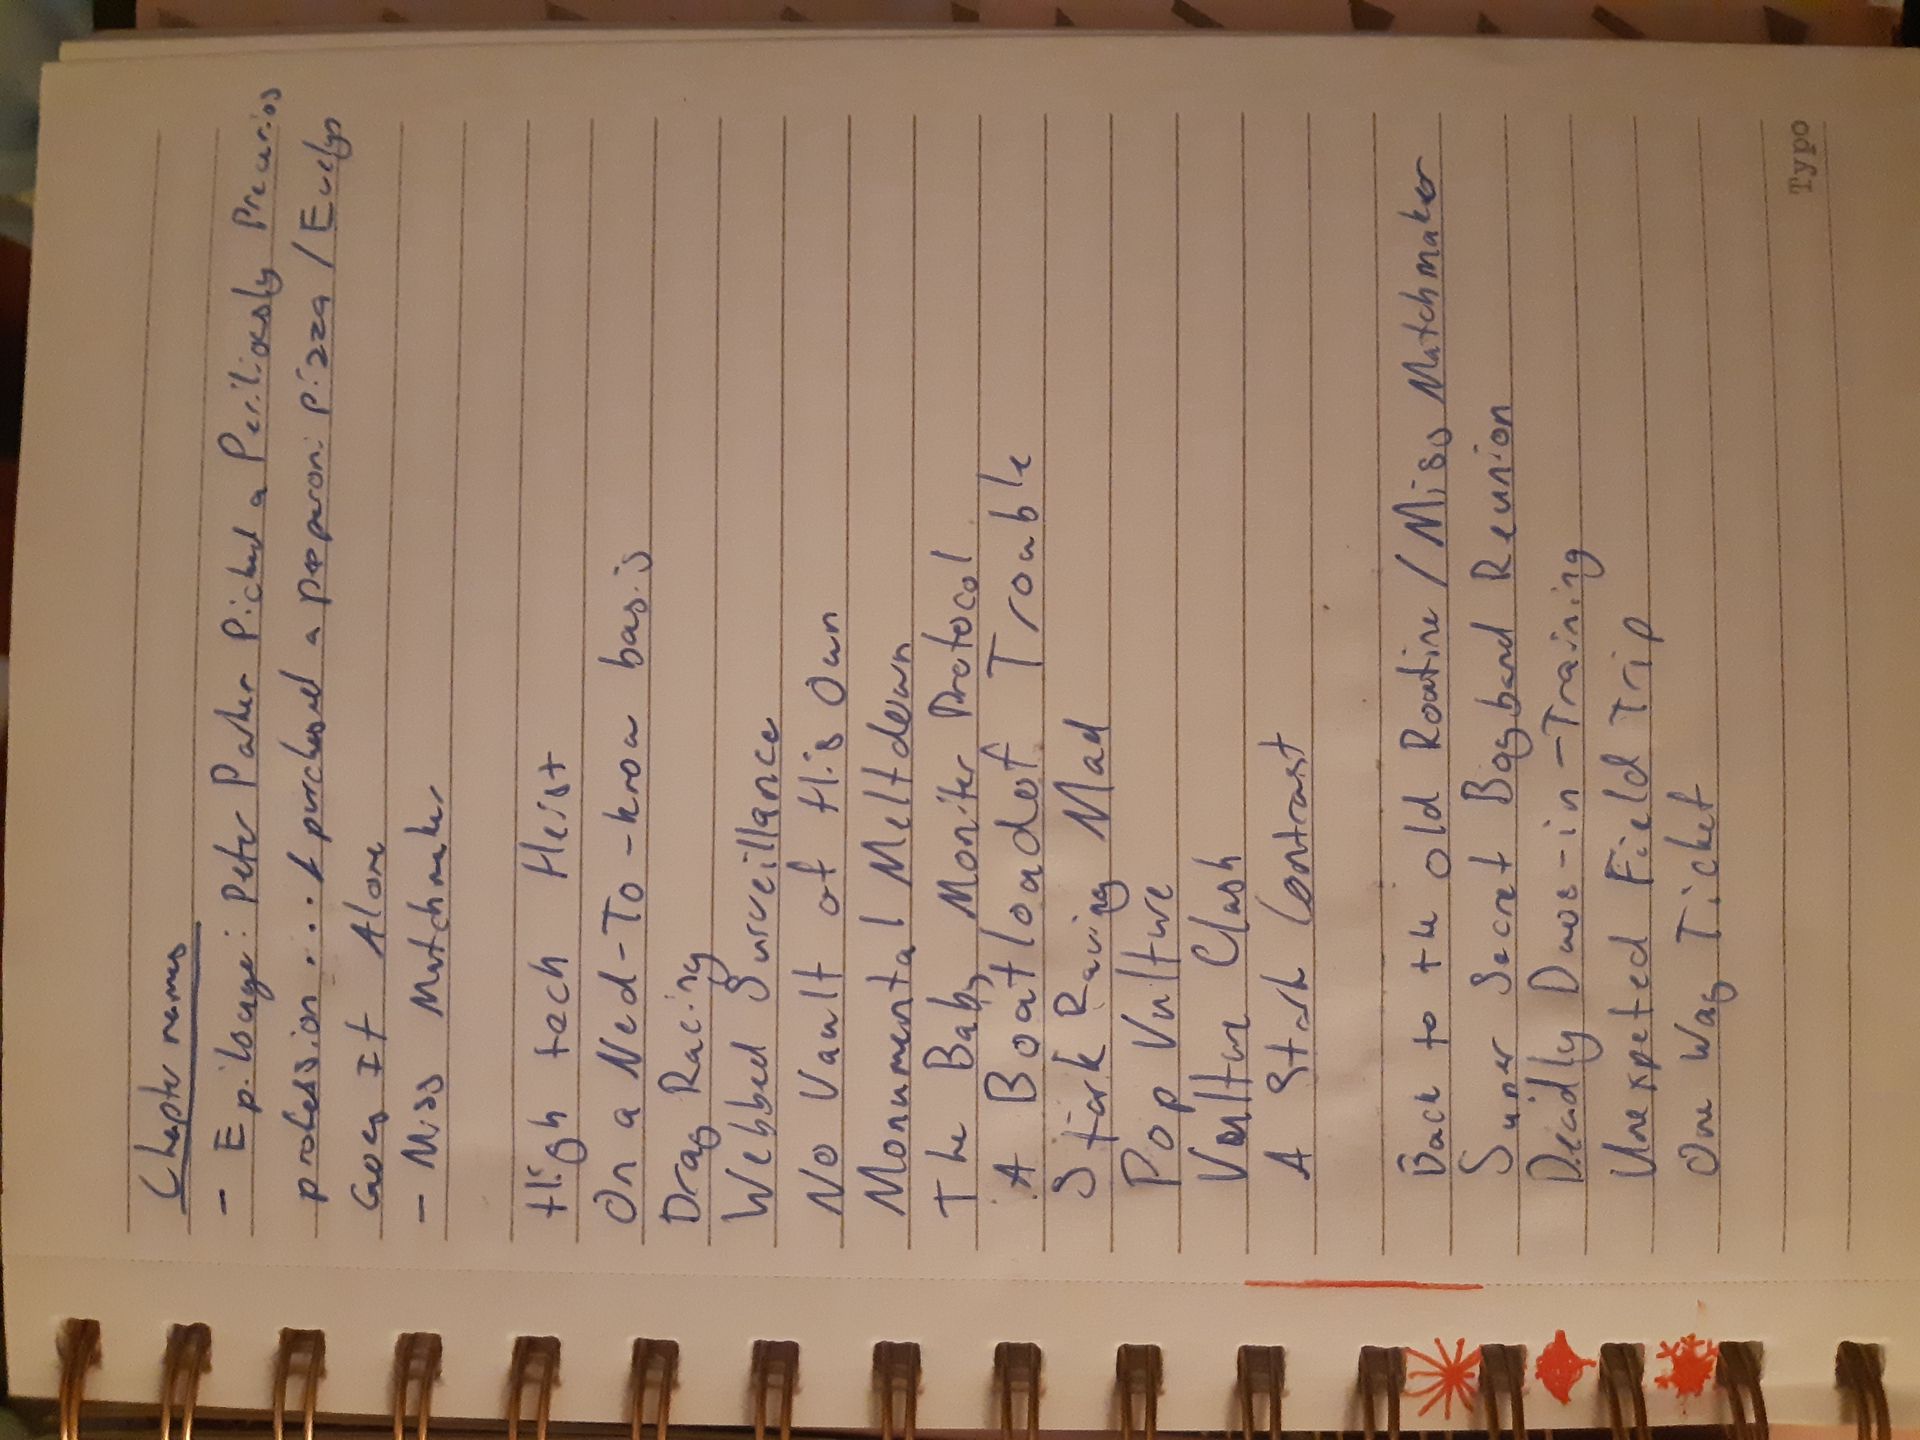 Chapter names
- Epilouge: Peter Parker Picked a Periliously Precarios
profession... & purchased a pepparoni pizza / Evelyn
Goes It Alone
- Miss Matchmaker
High tech Heist
On a Ned-To-know basis
Drag Racing
Webbed Surveillance
No Vault of His Own
Monumental Meltdown
The Baby Moniter Protocol
A Boatload of Trouble
Stark Raving Mad
Pop Vulture
Vulture Clash
A Stark Contrast
Back to the old Routine / Miss Matchmaker
Super Secret Boyband Reunion
Deadly Duos-in-Training
Unexpeted Field Trip
One Way Ticket
Typo